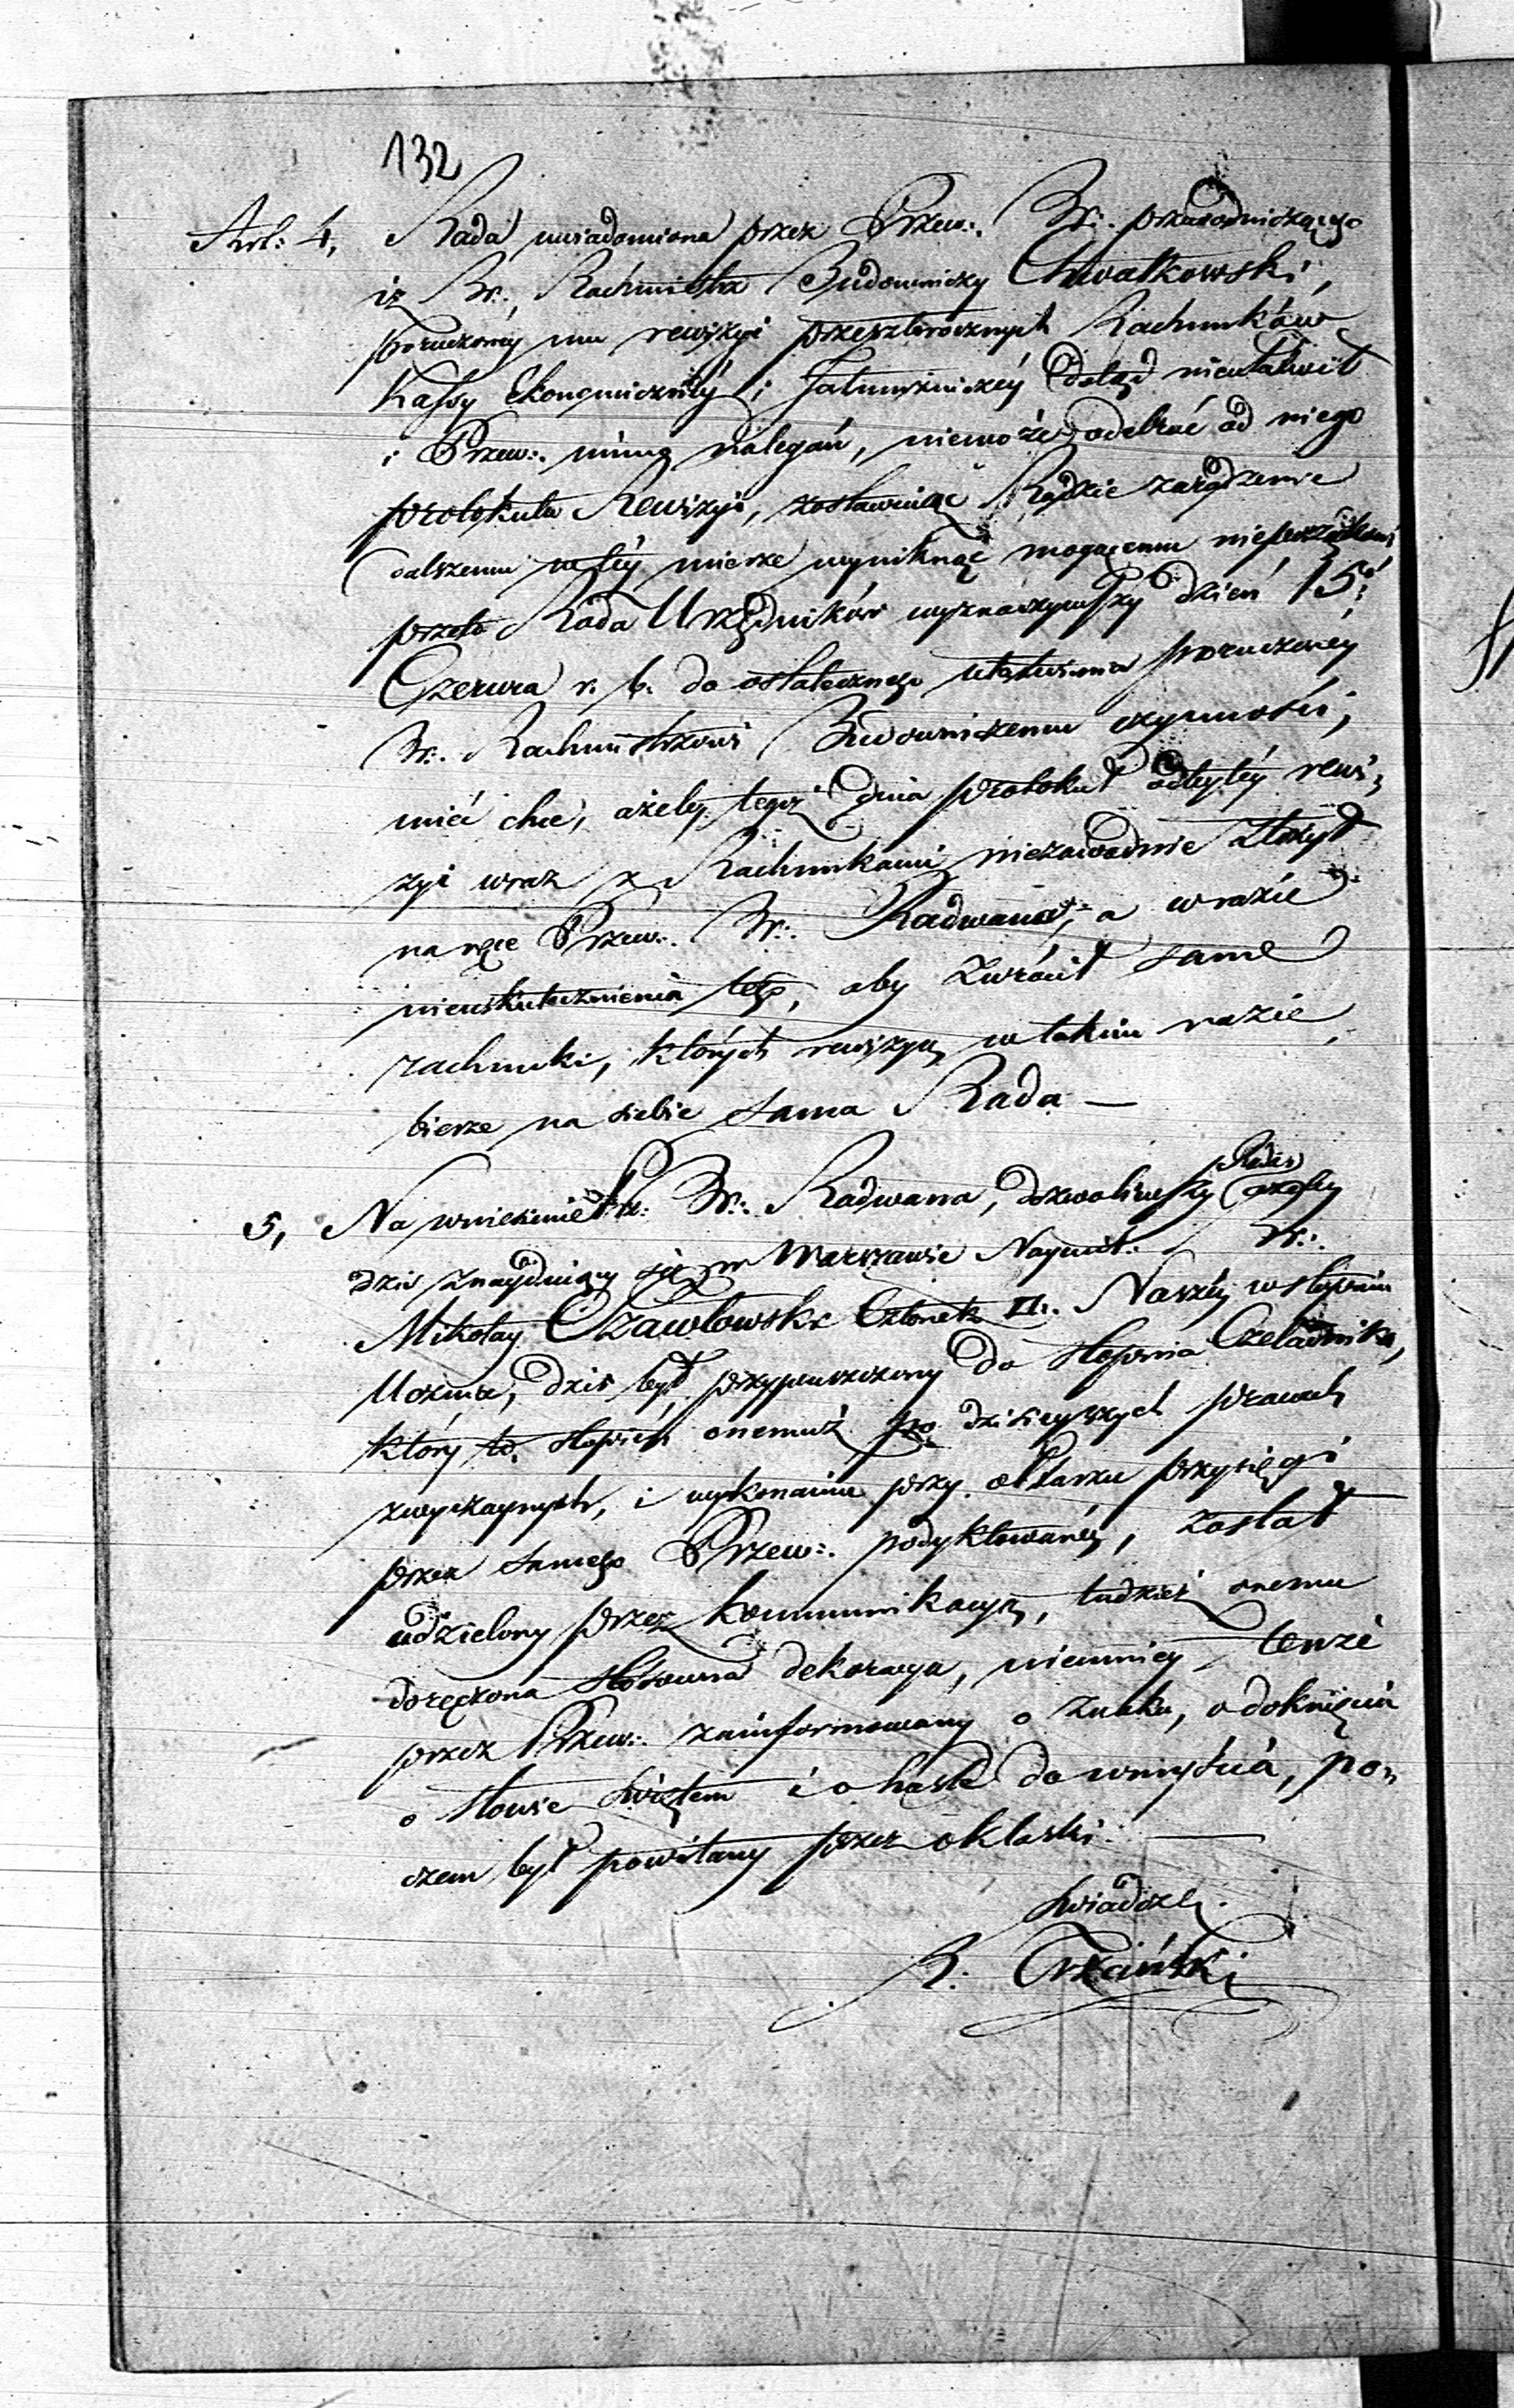 132
Art: 4, Rada uwiadomiona przez Przew:. Br:. przewodniczącego
iż Br:. Rachmistrz Budowniczy Chwatkowski,
poruczoney mu rewizyi przeszłorocznych Rachunków
Kassy Ekonomiczney i Jałmużniczey dotąd nieułatwił
i Przew:. mimo nalegań, niemoże odebrać od niego
protokułu Rewizyi, zostawuiąc Radzie zarądzenie
dalszemu w tey mierze wyniknąć mogącemu nieporządkowi
przeto Rada Urzędników wyznaczywszy dzień 15.
Czerwca r. b. do ostatecznego ułatwienia poruczoney
Br:. Rachmistrzowi Budowniczemu czynności,
mieć chce, ażeby tegoż dnia protokuł odbytéy rewi-
zyi wraz z Rachunkami niezawodnie złożył
na ręce Przew:. Br:. Radwana, a w razie
nieuskutecznienia tego, aby zwrócił same
rachunki, których rewizyą w takim razie
bierze na siebie sama Rada —
5, Na wniesienie Br:. Radwana, dozwoliwszy Rada
dziś znayduiący się w Warszawie Br:.
Mikołay Czawłowski Członek Naszéy w stopniu
Ucznia, dziś był przypuszczony do stopnia Czeladnika,
który to stopień onemuż po dzisieyszych pracach
zwyczaynych, i wykonaniu przy ołtarzu przysięgi
przez samego Przew:. podyktowanéy, został
udzielony przez kommunikacyą, tudzież onemu
doręczona stosowna dekoracya, niemniey tenże
przez Przew:. zainformowany o znaku, o doknięciu
o słowie świętem i o haśle do wniyścia, po-
czem był powitany przez oklaski. —
Świadczę
Trzciński